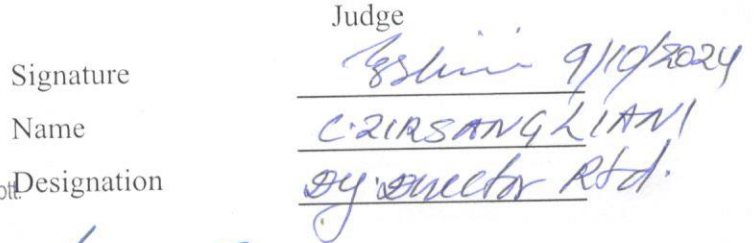 Judge
Signature 9/10/2024
Name C. ZIRSANGLIANI
ott.
Designation Dy. Director Rtd.